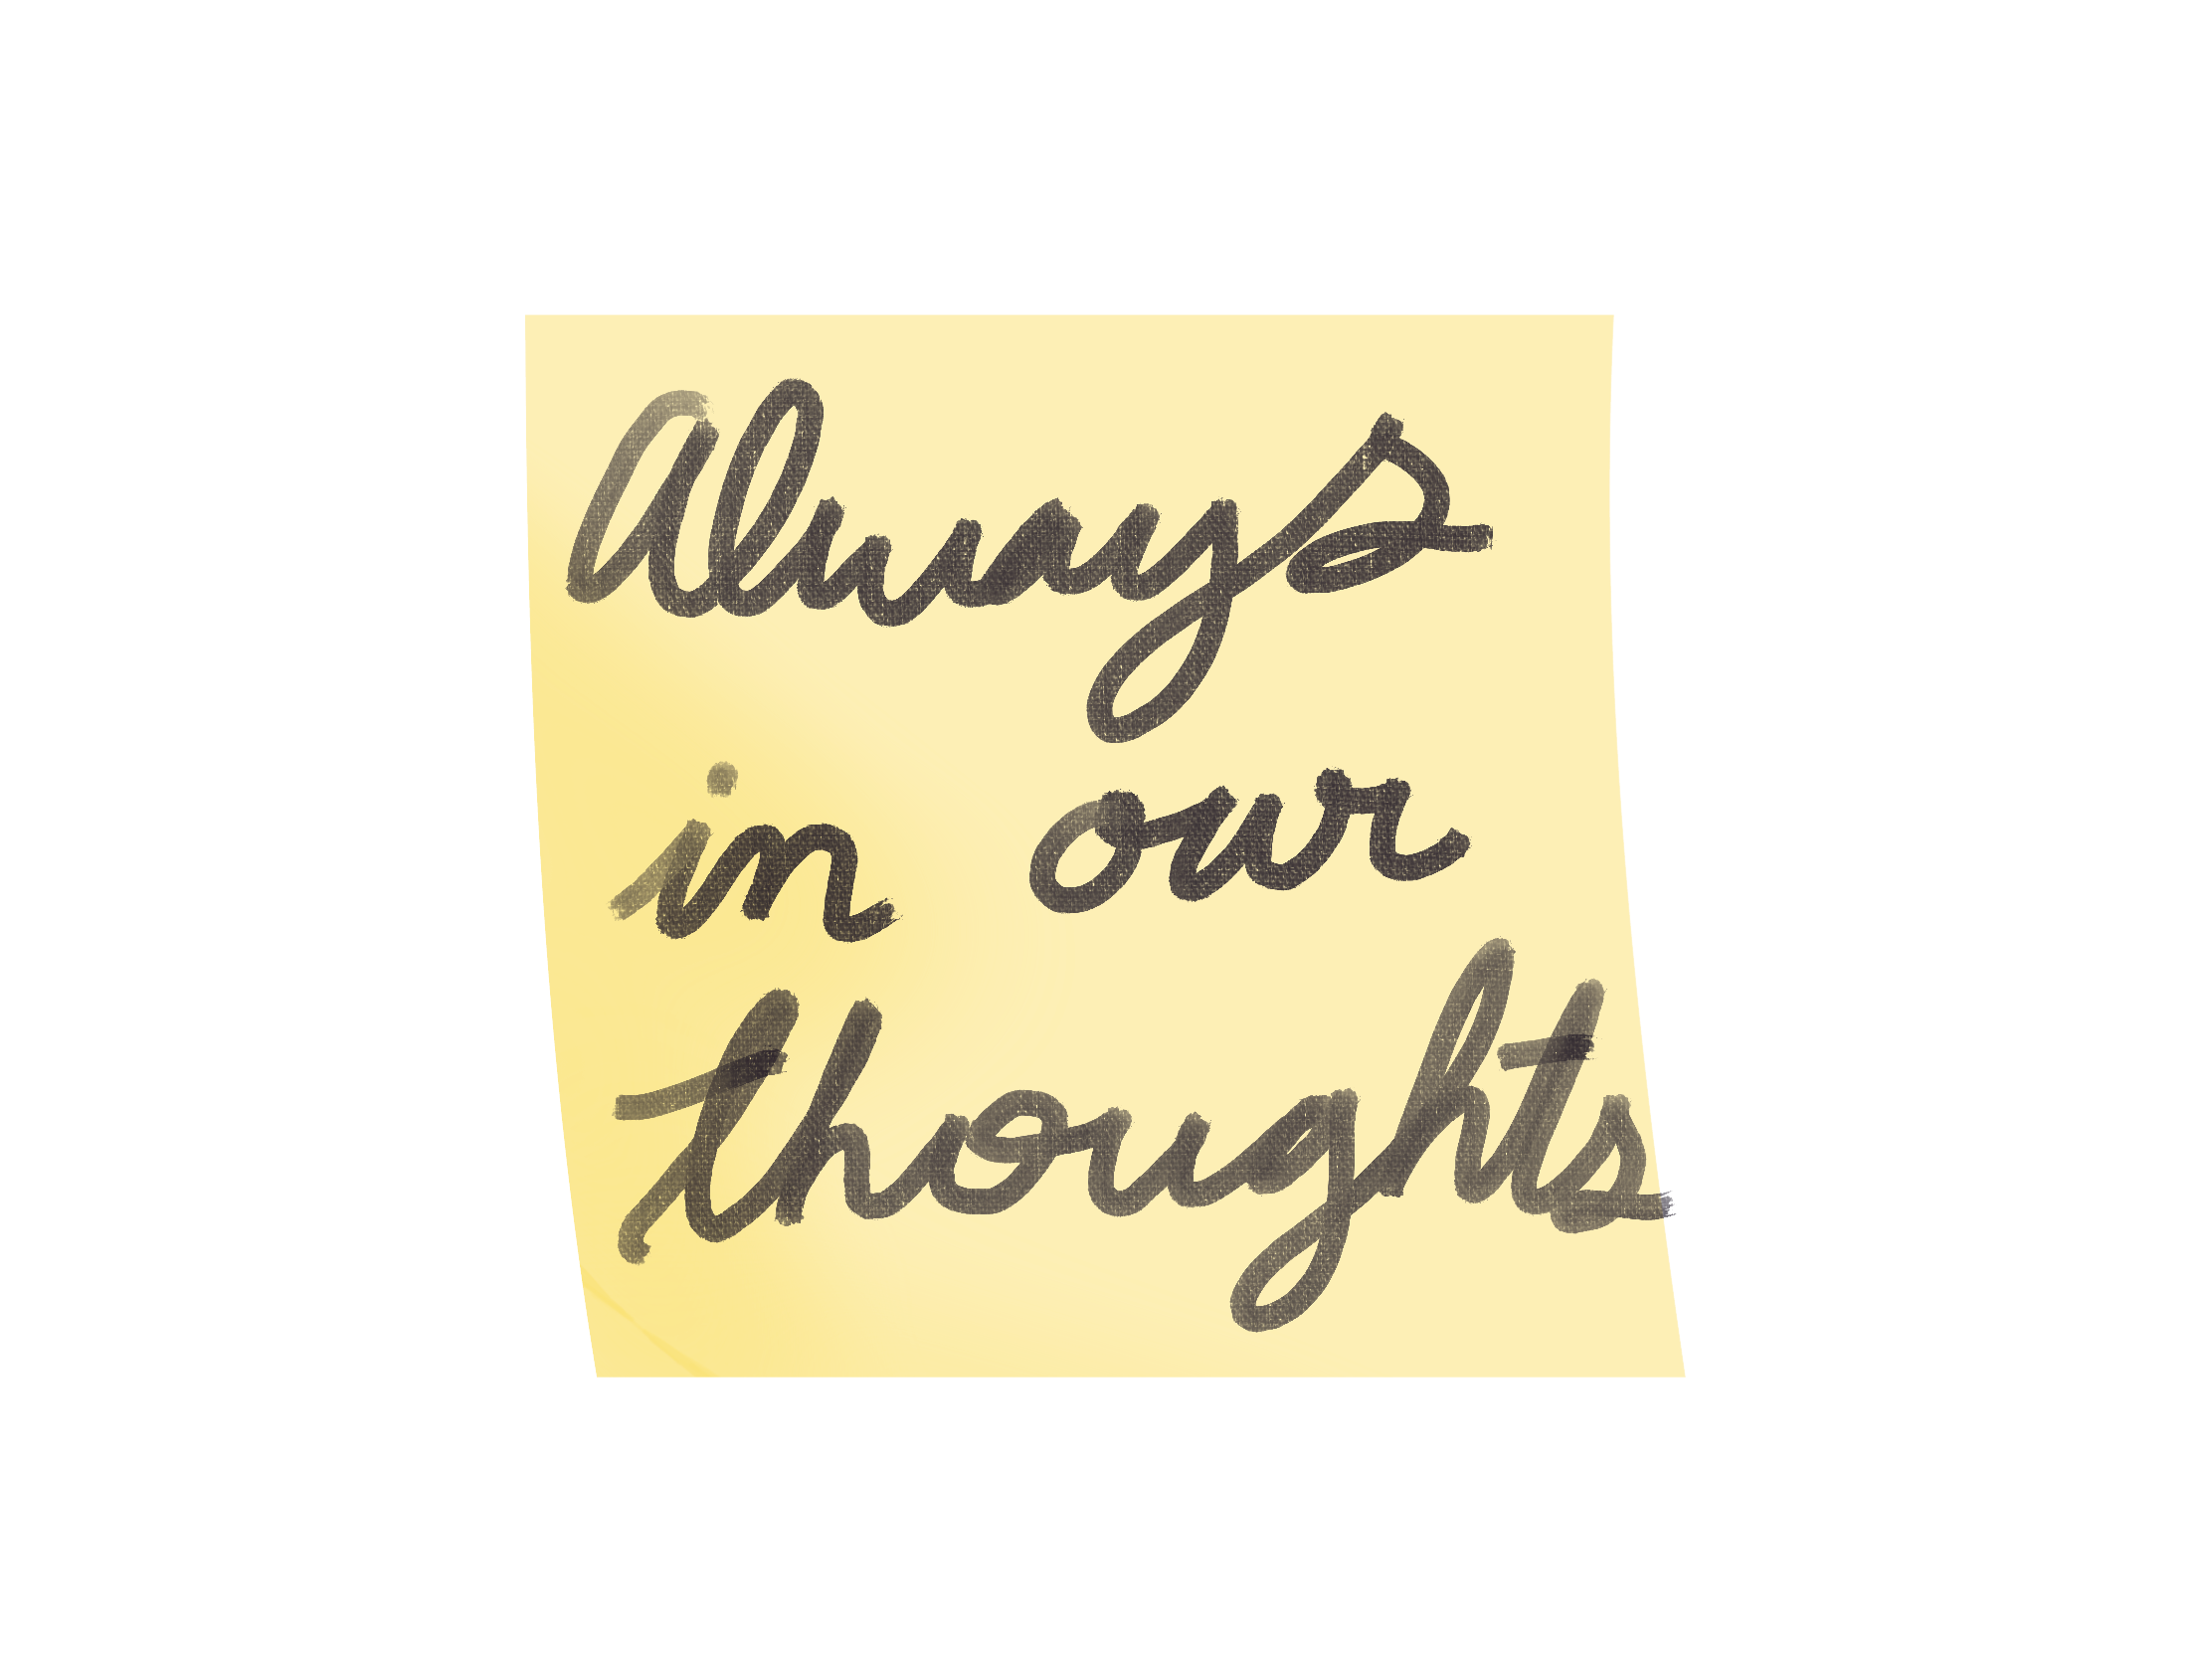 Always
in our
thoughts